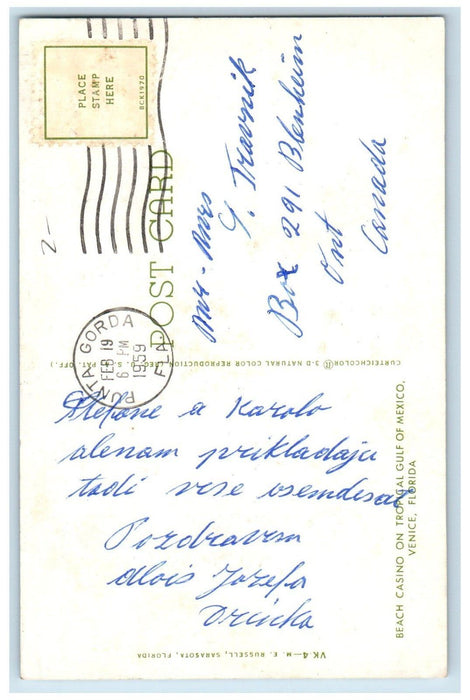 PLACE
STAMP
HERE
BCK1970
POST CARD
PUNTA GORDA
FEB 19
6 PM
1959
FLA.
Mr - Mrs
S. Travnik
Box 291 Blenheim
Ont
Canada
CURTEICHCOLOR® 3-D NATURAL COLOR REPRODUCTION (REG. U.S.A. PAT. OFF.)
Stefane a Karolo
alenam prikladaju
tadi vise osemdesat
Pozdravem
Alois Jozefa
BEACH CASINO ON TROPICAL GULF OF MEXICO,
VENICE, FLORIDA
VK.4—M. E. RUSSELL, SARASOTA, FLORIDA